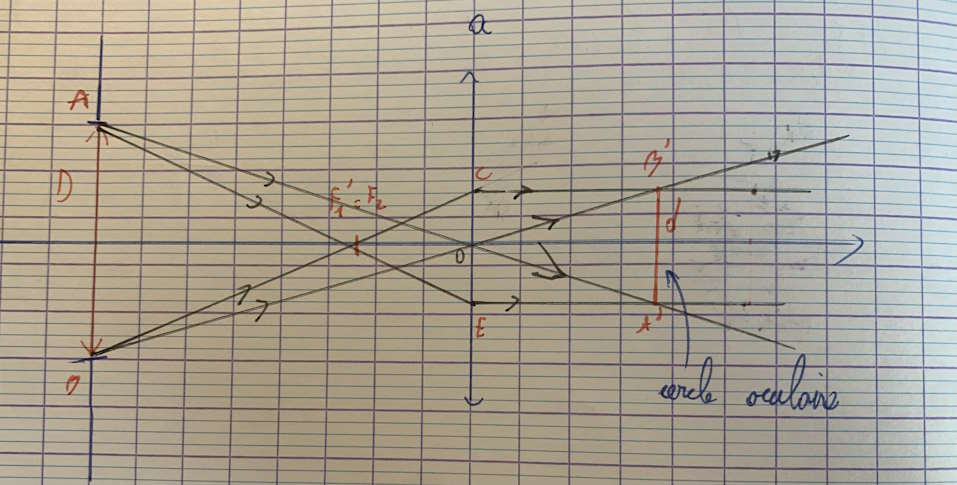 a
A
D
F₁' = F₂
C
B'
d
O
E
A'
cercle oculaire